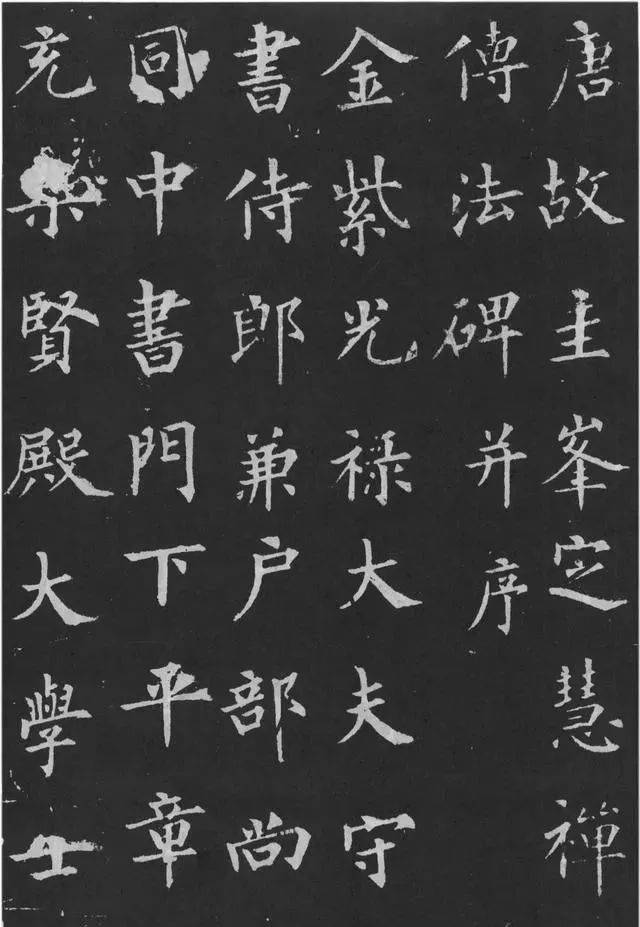 唐故圭峯定慧禪
傳法碑并序
金紫光禄大夫守
書侍郎兼户部尚
同中書門下平章
充集賢殿大學士